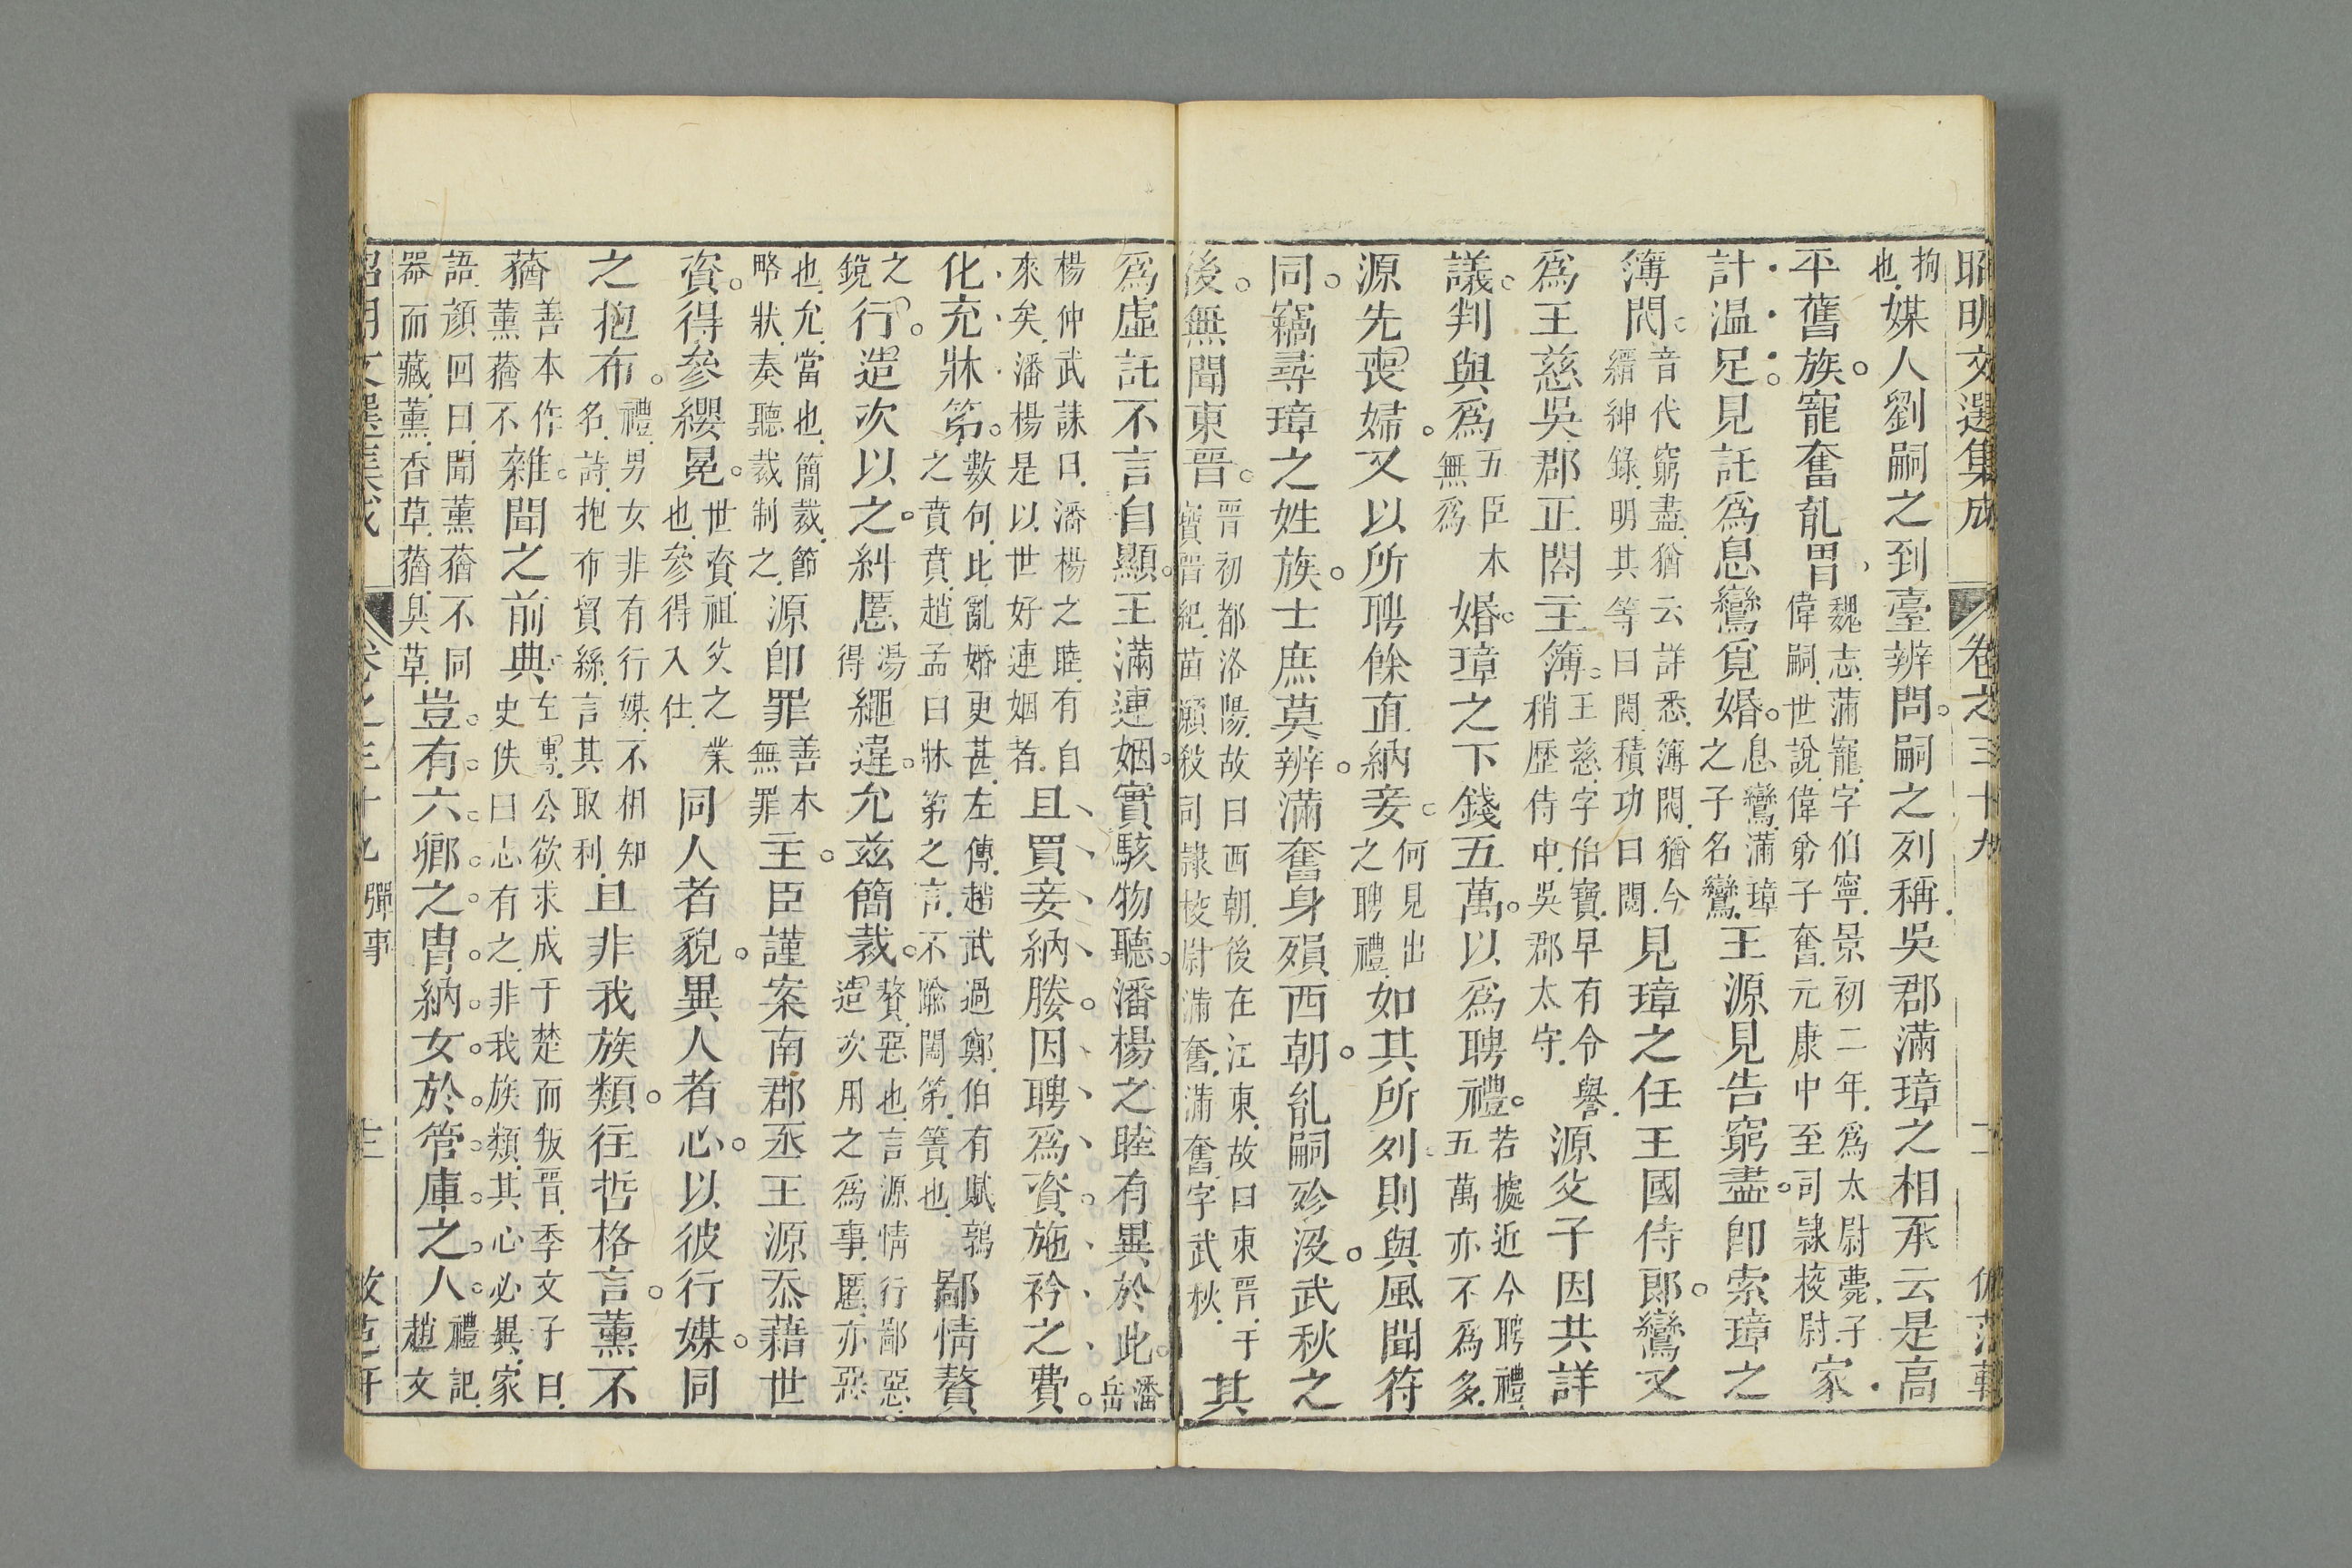 昭明文選集成　卷之三十九
拘也媒人劉嗣之到臺辨問。嗣之列稱吳郡滿璋之相承云是高
平舊族。寵奮胤冑魏志滿寵字伯寧景初二年爲太尉薨子偉嗣世說偉弟子奮元康中至司隷校尉家
計温足。見託爲息鸞覓婚。息鸞滿璋之子名鸞王源見告窮盡。卽索璋之
簿閥。音代窮盡猶云詳悉簿閥猶今縉紳錄明其等曰閥積功曰閥見璋之任王國侍郎。鸞又
爲王慈吳郡正閤主簿。王慈字伯寶早有令譽稍歷侍中吳郡太守源父子因共詳
議。判與爲五臣本無爲婚。璋之下錢五萬。以爲聘禮。若據近今聘禮五萬亦不爲多
源先喪婦。又以所聘餘直納妾。何見出之聘禮如其所列。則與風聞符
同。竊尋璋之姓族。士庶莫辨。滿奮身殞西朝。胤嗣殄沒。武秋之
後。無聞東晉。晉初都洛陽故曰西朝後在江東故曰東晉干寶晉紀苗願殺司隷校尉滿奮滿奮字武秋其
爲虛託不言自顯。王滿連姻。實駭物聽。潘楊之睦有異於此。潘岳
楊仲武誄曰潘楊之睦有自來矣潘楊是以世好連姻者且買妾納媵。因聘爲資。施衿之費。
化充牀第。數句此亂婚更甚左傳趙武過鄭伯有賦鶉之賁賁趙孟曰牀第之言不踰閾第簀也鄙情贅
之行。造次以之。糾慝湯得繩違。允茲簡裁。贅惡也言源情行鄙惡造次用之爲事慝亦惡
也允當也簡裁節略狀奏聽裁制之源卽罪善本無罪主。臣謹案南郡丞王源忝藉世
資。得參纓冕。世資祖父之業也參得入仕同人者貌。異人者心。以彼行媒。同
之抱布。禮男女非有行媒不相知名詩抱布貿絲言其取利且非我族類。往哲格言。薰不
蕕善本作薰蕕不雜。聞之前典。左傳公欲求成于楚而叛晉季文子曰史佚曰志有之非我族類其心必異家
語顏回曰聞薰蕕不同器而藏薰香草蕕臭草豈。有。六。卿。之。冑。納。女。於。管。庫。之。人。禮記趙文
昭明文選集成　卷之三十九　彈事　仿范軒